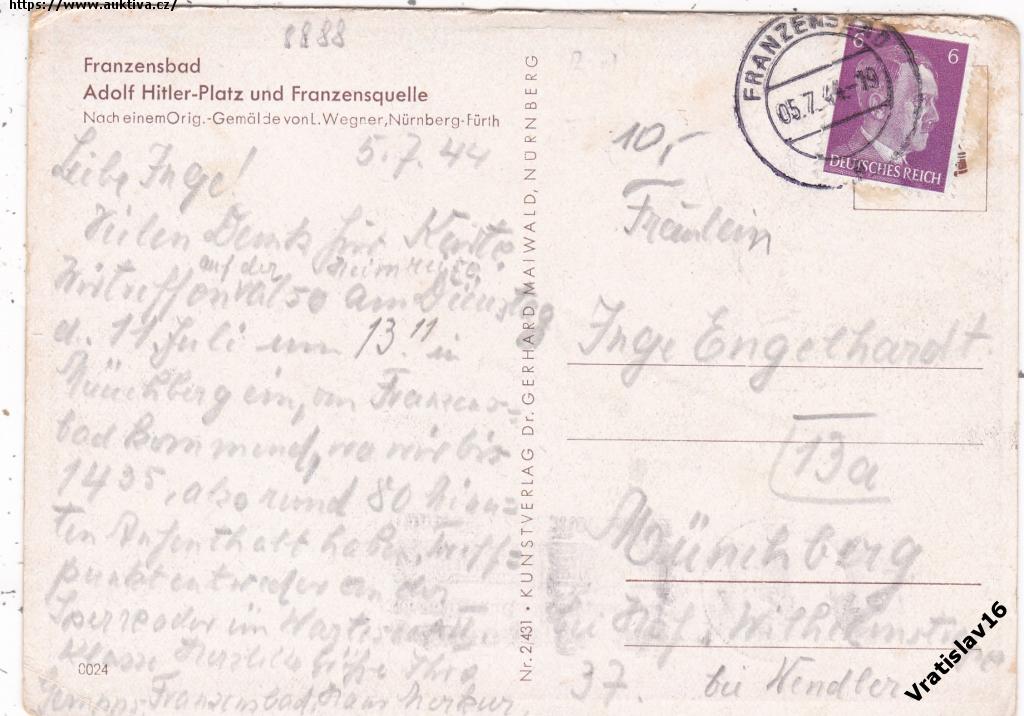 https://www.auktiva.cz/
8888
Franzensbad
Adolf Hitler-Platz und Franzensquelle
Nach einem Orig.-Gemälde von L. Wegner, Nürnberg-Fürth
5.7.44
Liebe Inge!
Vielen Dank für Karte
auf der Heimreise
Wir treffen am Dienstag
d. 11 Juli um 13.11 in
Münchberg ein, von Franzens-
bad kommend, wo wir bis
1435, also rund 80 Minu=
ten Aufenthalt haben, Treff=
punkt entweder an der
Sperre oder im Wartesaal
Klasse Herzlich
Franzensbad, Haus Merkur
0024
Nr. 2/431 • KUNSTVERLAG Dr. GERHARD MAIWALD, NÜRNBERG
FRANZENSBAD
05.7.44-19
6 6
DEUTSCHES REICH
10,-
Fräulein
Inge Engelhardt
13a
Münchberg
bei Hof, Wilhelmstr
37. bei Wendler
Vratislav16